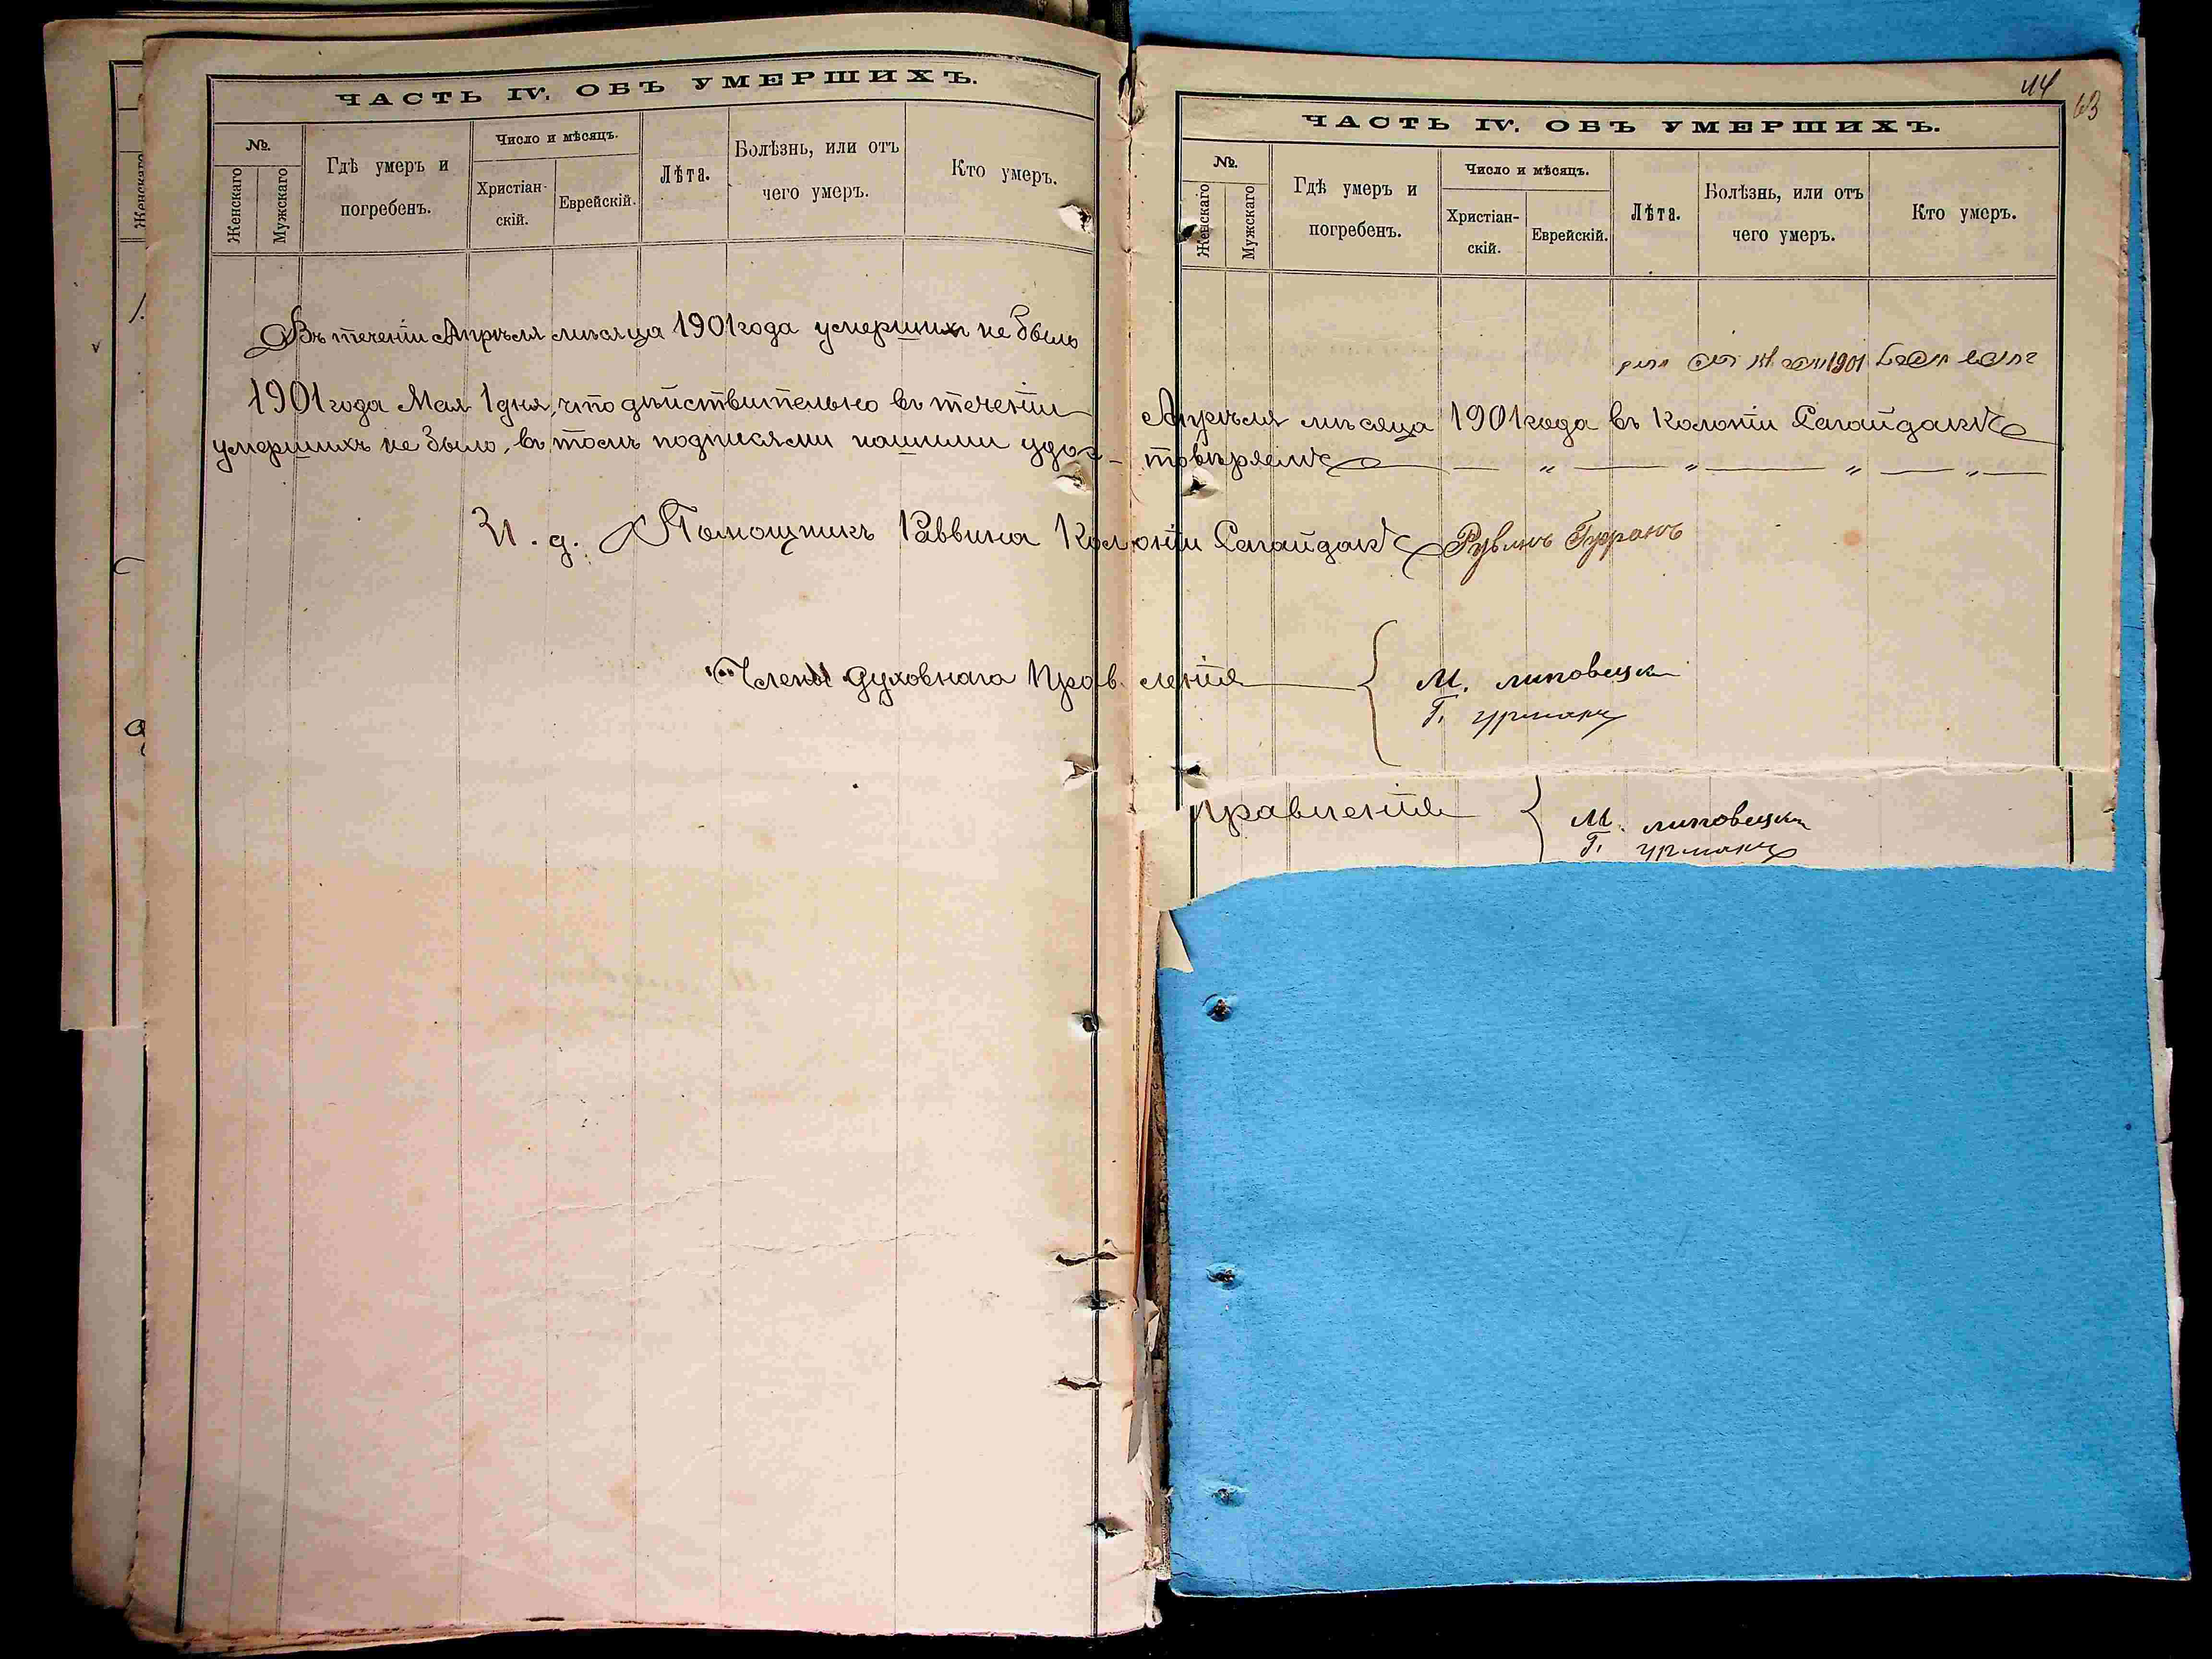 ЧАСТЬ IV. ОБЪ УМЕРШИХЪ.
№.
Женскаго
Мужскаго
Гдѣ умеръ и погребенъ.
Число и мѣсяцъ.
Христіан-
скій.
Еврейскій.
Лѣта.
Болѣзнь, или отъ
чего умеръ.
Кто умеръ.
Въ теченіи Апрѣля мѣсяца 1901 года умершихъ не было
1901 года Мая 1 дня, что дѣйствительно въ теченіи
умершихъ не было, въ томъ подписями нашими удос-
И. д. Помощникъ Раввина Колоніи Сагайдакъ
Члены Духовнаго Правленія
Женскаго
114
63
ЧАСТЬ IV. ОБЪ УМЕРШИХЪ.
№.
Женскаго
Мужскаго
Гдѣ умеръ и
погребенъ.
Число и мѣсяцъ.
Христіан-
скій.
Еврейскій.
Лѣта.
Болѣзнь, или отъ
чего умеръ.
Кто умеръ.
1901
Апрѣля мѣсяца 1901 года въ Колоніи Сагайдакъ
товѣряемъ
Рувинъ
М. Липовецки
Г. Гурманъ
Правленія
М. Липовецки
Г. Гурманъ